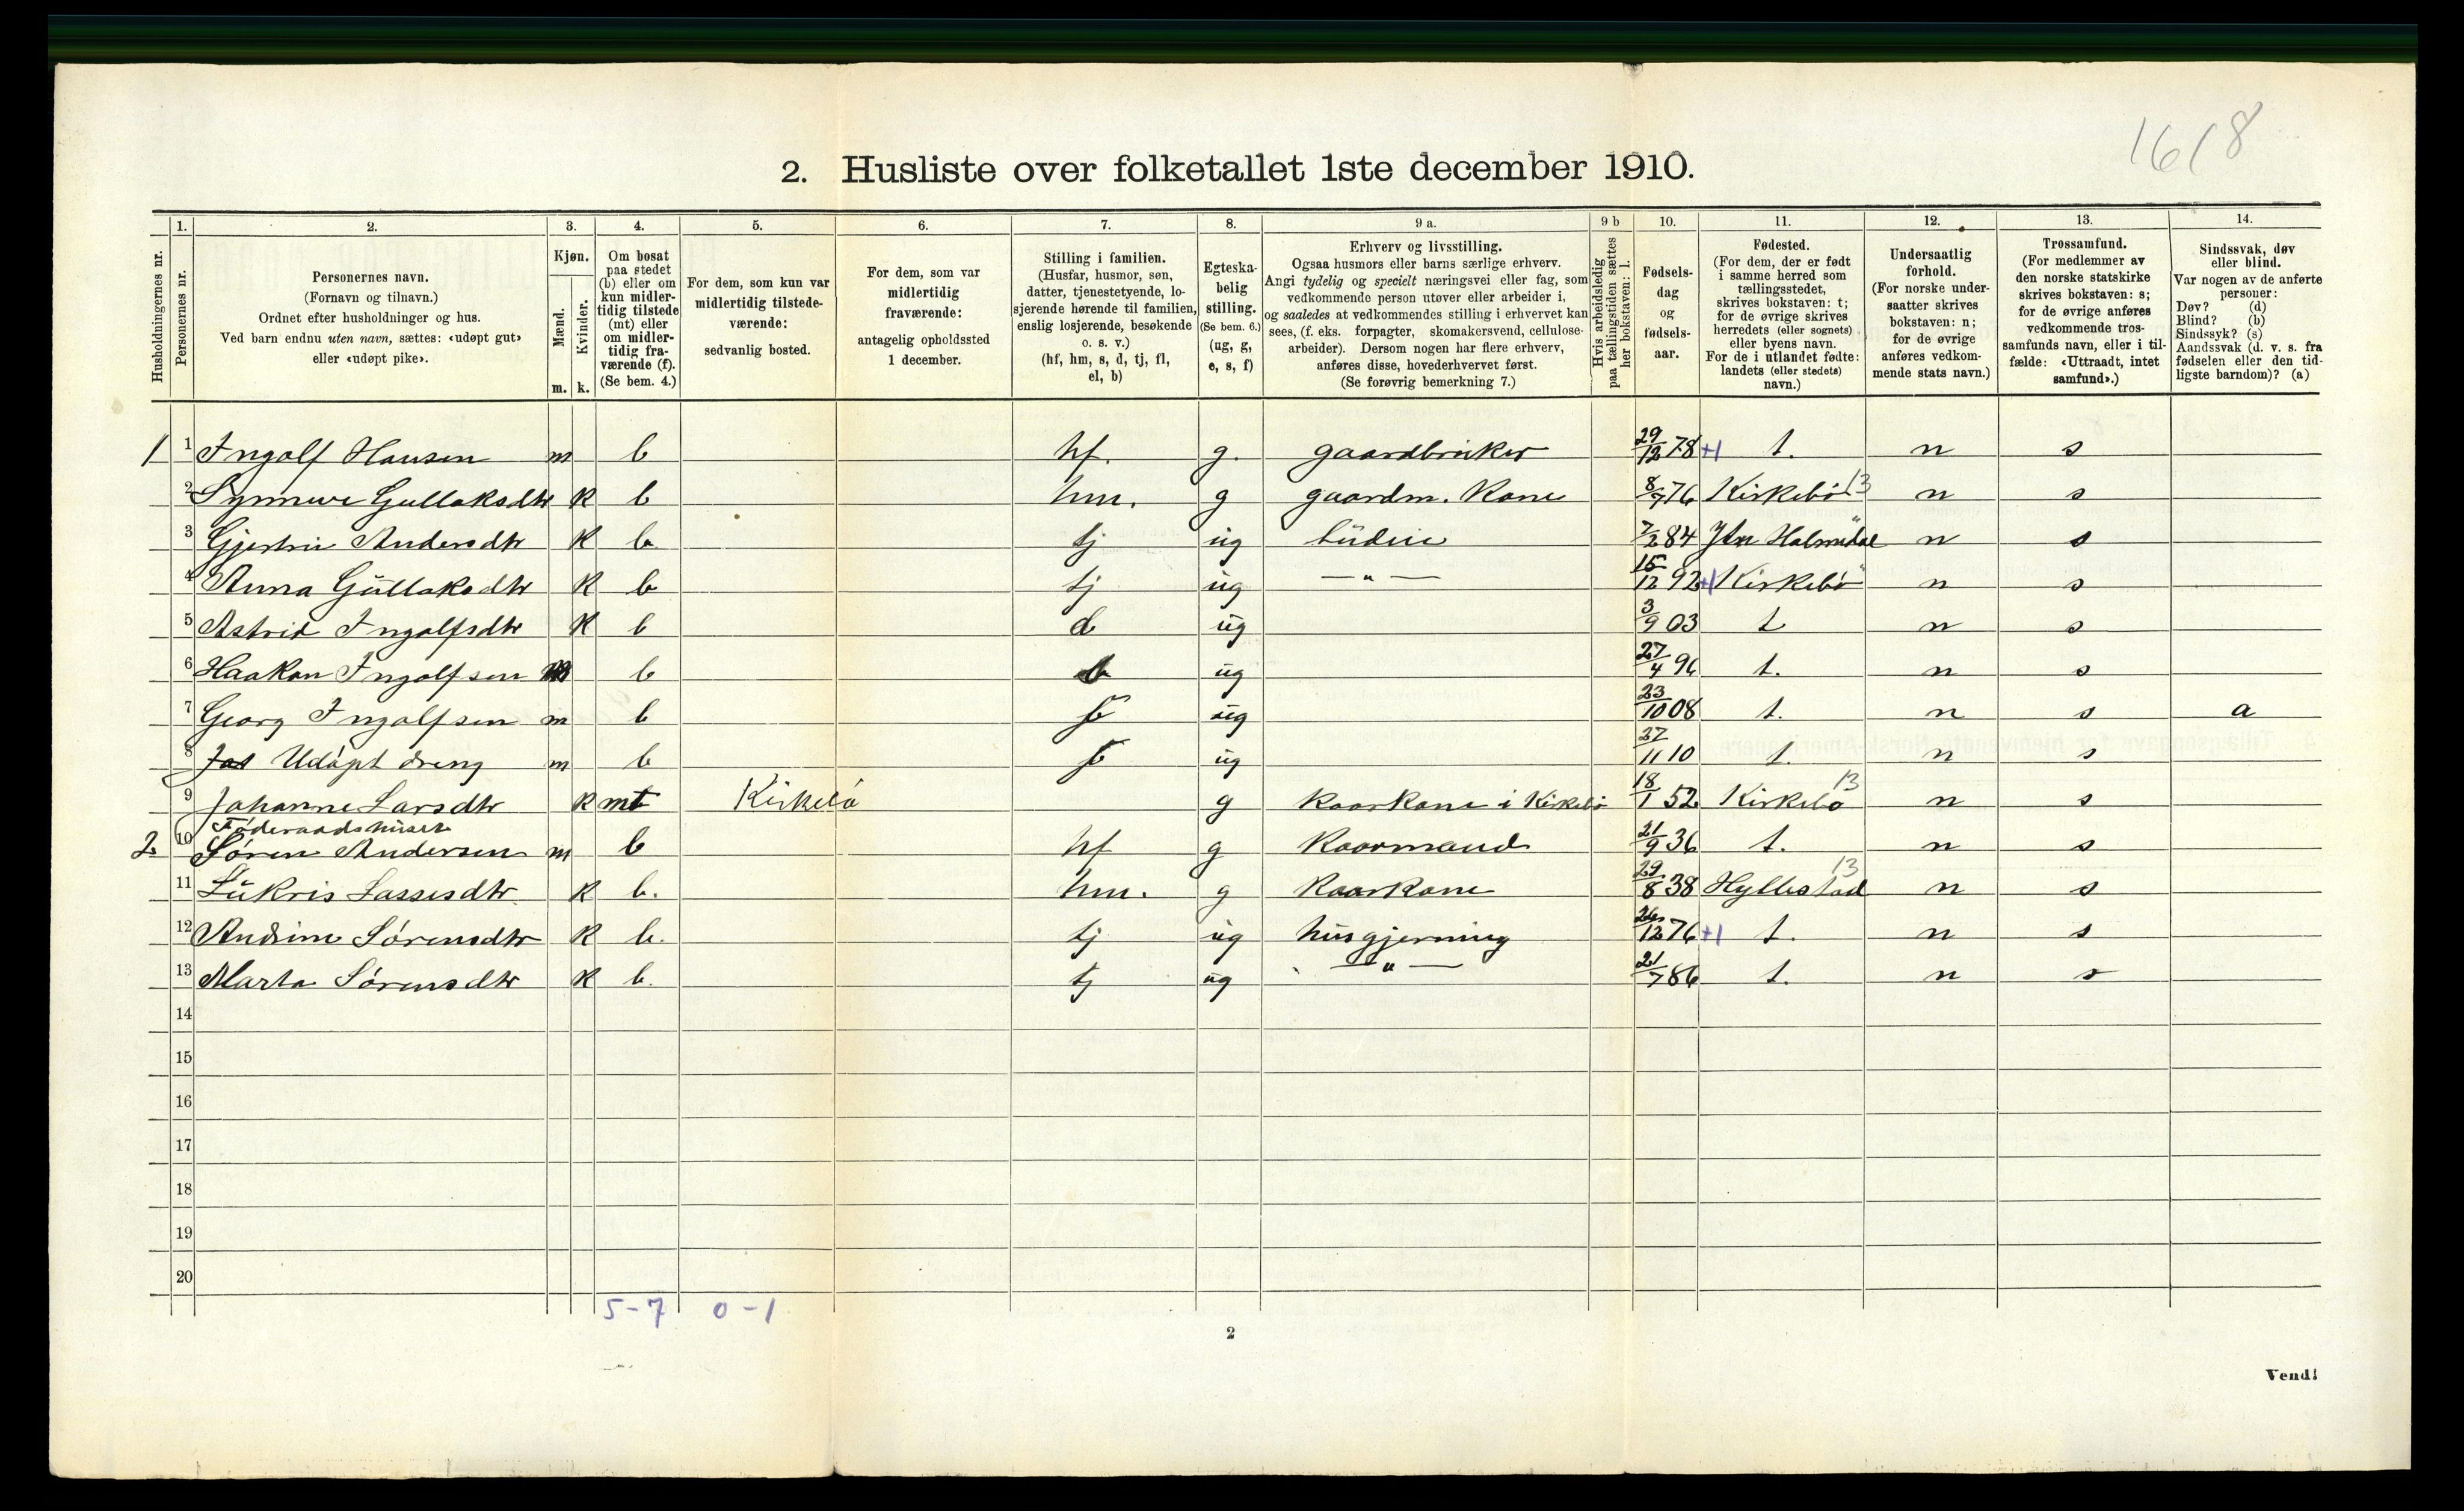 1618
2. Husliste over folketallet 1ste december 1910.
Husholdningernes nr.
1.
Personernes nr.
2.
Personernes navn.
(Fornavn og tilnavn.)
Ordnet efter husholdninger og hus.
Ved barn endnu uten navn, sættes: «udøpt gut»
eller «udøpt pike».
3.
Kjøn.
Mænd.
Kvinder.
m. k.
4.
Om bosat
paa stedet
(b) eller om
kun midler-
tidig tilstede
(mt) eller
om midler-
tidig fra-
værende (f).
(Se bem. 4.)
5.
For dem, som kun var
midlertidig tilstede-
værende:
sedvanlig bosted.
6.
For dem, som var
midlertidig
fraværende:
antagelig opholdssted
1 december.
7.
Stilling i familien.
(Husfar, husmor, søn,
datter, tjenestetyende, lo-
sjerende hørende til familien,
enslig losjerende, besøkende
o. s. v.)
(hf, hm, s, d, tj, fl,
el, b)
8.
Egteska-
belig
stilling.
(Se bem. 6.)
(ug, g,
e, s, f)
9 a.
Erhverv og livsstilling.
Ogsaa husmors eller barns særlige erhverv.
Angi tydelig og specielt næringsvei eller fag, som
vedkommende person utøver eller arbeider i,
og saaledes at vedkommendes stilling i erhvervet kan
sees, (f. eks. forpagter, skomakersvend, cellulose-
arbeider). Dersom nogen har flere erhverv,
anføres disse, hovederhvervet først.
(Se forøvrig bemerkning 7.)
9 b
Hvis arbeidsledig
paa tællingstiden sættes
her bokstaven: l.
10.
Fødsels-
dag
og
fødsels-
aar.
11.
Fødested.
(For dem, der er født
i samme herred som
tællingsstedet,
skrives bokstaven: t;
for de øvrige skrives
herredets (eller sognets)
eller byens navn.
For de i utlandet fødte:
landets (eller stedets)
navn.)
12.
Undersaatlig
forhold.
(For norske under-
saatter skrives
bokstaven: n;
for de øvrige
anføres vedkom-
mende stats navn.)
13.
Trossamfund.
(For medlemmer av
den norske statskirke
skrives bokstaven: s;
for de øvrige anføres
vedkommende tros-
samfunds navn, eller i til-
fælde: «Uttraadt, intet
samfund».)
14.
Sindssvak, døv
eller blind.
Var nogen av de anførte
personer:
Døv? (d)
Blind? (b)
Sindssyk? (s)
Aandssvak (d. v. s. fra
fødselen eller den tid-
ligste barndom)? (a)
1 1 Ingolf Hansen m b hf. g. gaardbruker 29/12 78 +1 t. n s
2 Synneve Gullaksdtr k b hm. g gaardm. kone 8/7 76 Kirkebö 13 n s
3 Andersdtr k b tj ug budeie 7/2 84 Holmedal n s
4 Anna Gullaksdtr k b tj ug — " — 15/12 92 +1 Kirkebö n s
5 Astrid Ingolfsdtr k b d ug 3/9 03 t n s
6 Haakon Ingolfsen m b ug 27/4 96 t. n s
7 Georg Ingolfsen m b ug 23/10 08 t. n s a
8 Udöpt dreng m b ug 27/11 10 t. n s
9 Johanne Larsdtr k mt Kirkebö g kaarkone i Kirkebö 18/1 52 Kirkebö 13 n s
Föderaadshuset
2 10 Sören Andersen m b hf g kaarmand 21/9 36 t. n s
11 Lukris Lassesdtr k b. hm. g kaarkone 29/8 38 Hyllestad 13 n s
12 Andrine Sörensdtr k b. tj ug husgjerning 26/12 76 +1 t. n s
13 Marta Sörensdtr k b. tj ug — " — 21/7 86 t. n s
14
15
16
17
18
19
20
5-7 0-1
2
Vend!